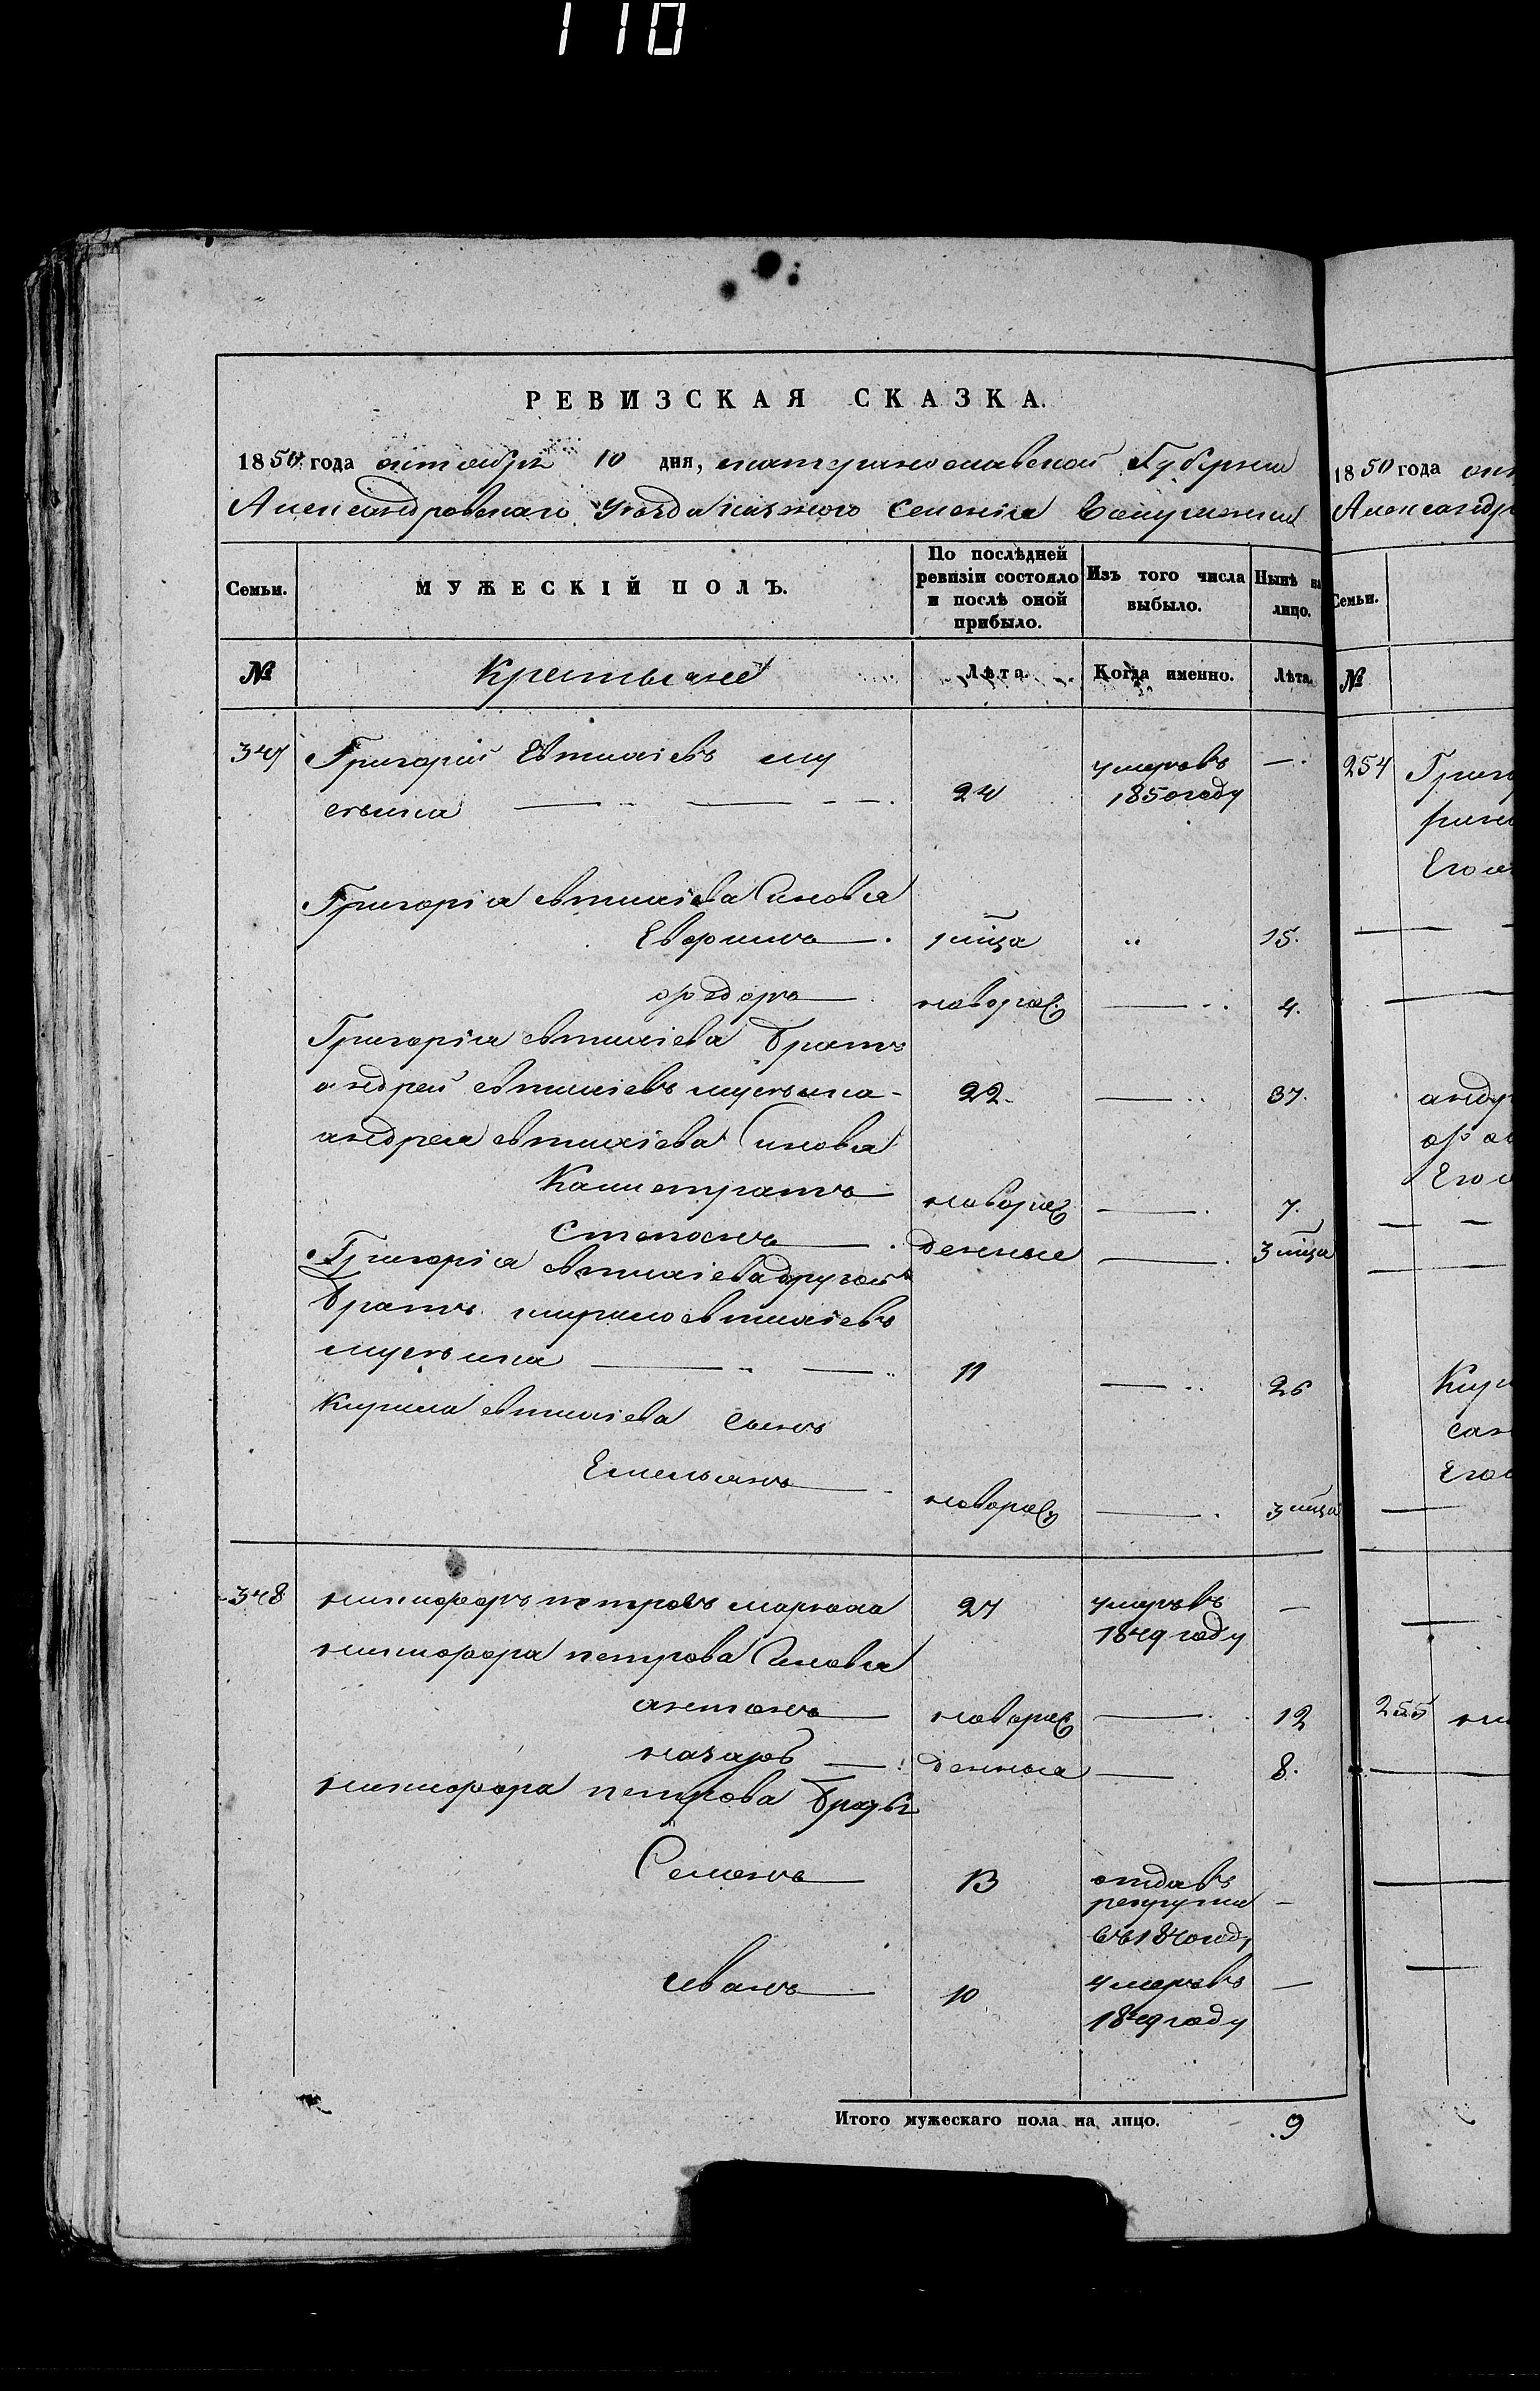 110
РЕВИЗСКАЯ СКАЗКА.
1850 года октября 10 дня, екатеринославской Губернии
Александровскаго Уезда казеного Селения
Семьи.
МУЖЕСКІЙ ПОЛЪ.
По послѣдней ревизіи состояло и послѣ оной прибыло.
Изъ того числа выбыло.
Нынѣ на лицо.
№
Крестьяне
Лѣта.
Когда именно.
Лѣта.
347 Григорий Евтихіевъ му
сьика 24 умеръ въ 1850 году —
Григорія евтихіева Синовья
1 мца " 15.
федоръ новорож 4.
Григорія евтихіева братъ
андрей евтихіевъ мусьика 22. 37.
андрея евтихіева Синовья
Калистратъ новорож 7.
Степанъ денные 3 мца
Григорія евтихіева другой
братъ кирило евтихіевъ
мусьика 11 26
Кирила евтихіева сынъ
Емельянъ новорож 3 мца
348 никифоръ петровъ 27 умеръ въ 1849 году —
никифора петрова Синовья
антонъ новорож 12
назаръ денные 8.
никифора петрова братья
Семенъ 13 отдавъ рекрути въ 1840 году —
иванъ 10 умеръ въ 1849 году —
Итого мужескаго пола на лицо. 9
1850 года
Семьи.
№
254
андр
Его
Кири
Его
255